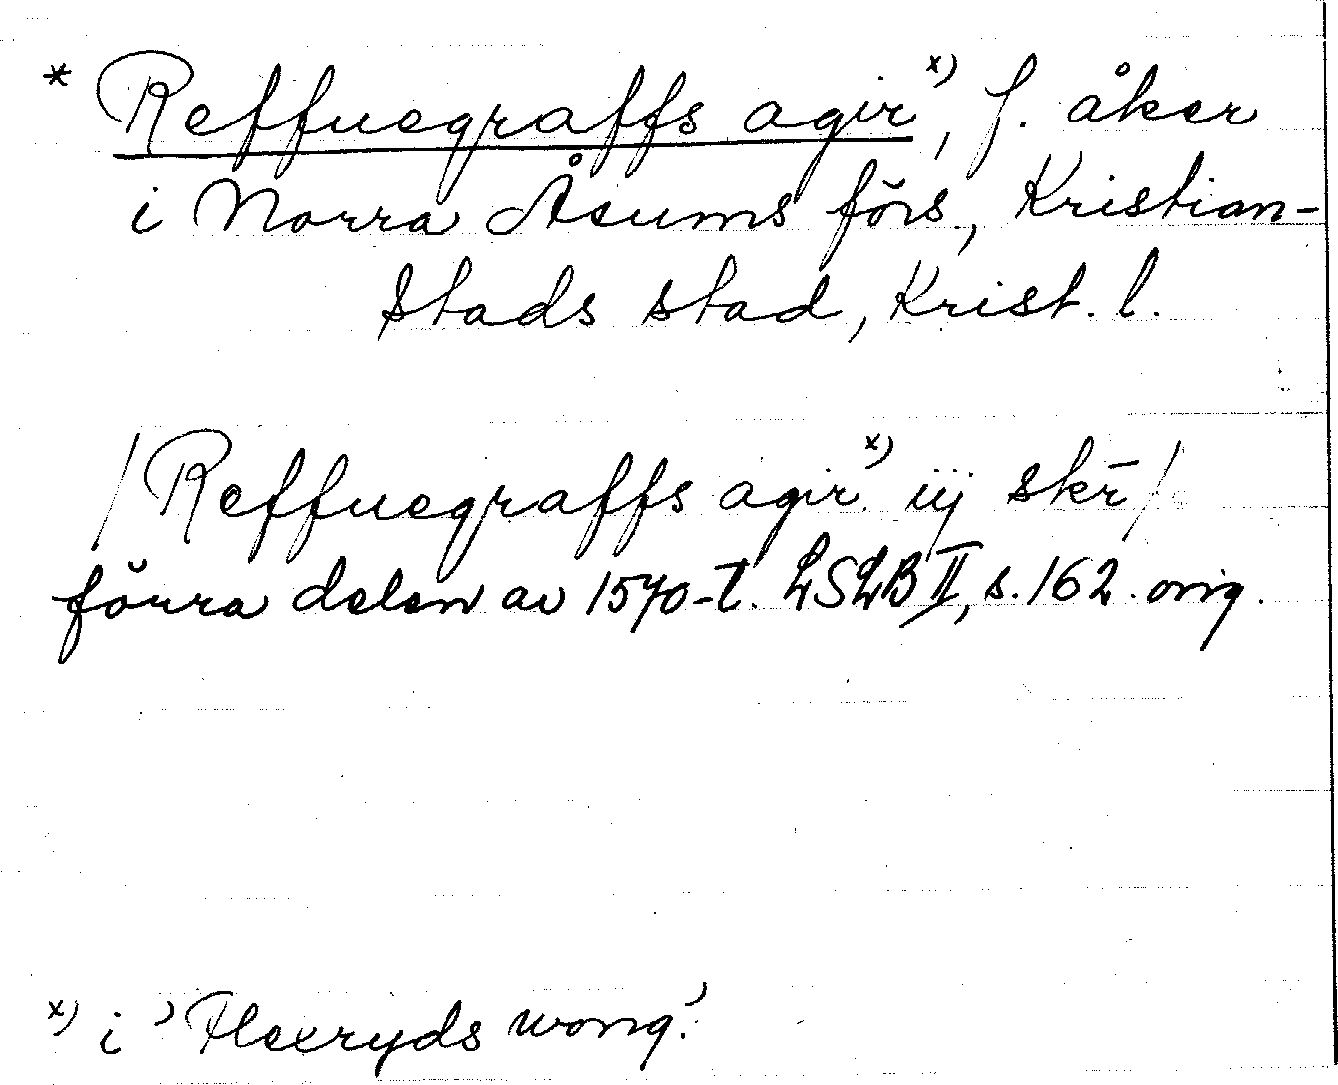 * Reffuegraffs agir x), f. åker
i Norra Åsums förs, Kristian-
stads stad, Krist. l.
/Reffuegraffs agir x) iij skr̄/
förra delen av 1570-t. LSLB II, s. 162. orig.
x) i 'Flexryds wong.'